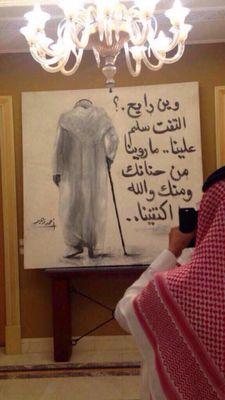 وين رايح .؟
التفت سلم
علينا .. ماروينا
من حنانك
ومنك والله
اكتفينا ..